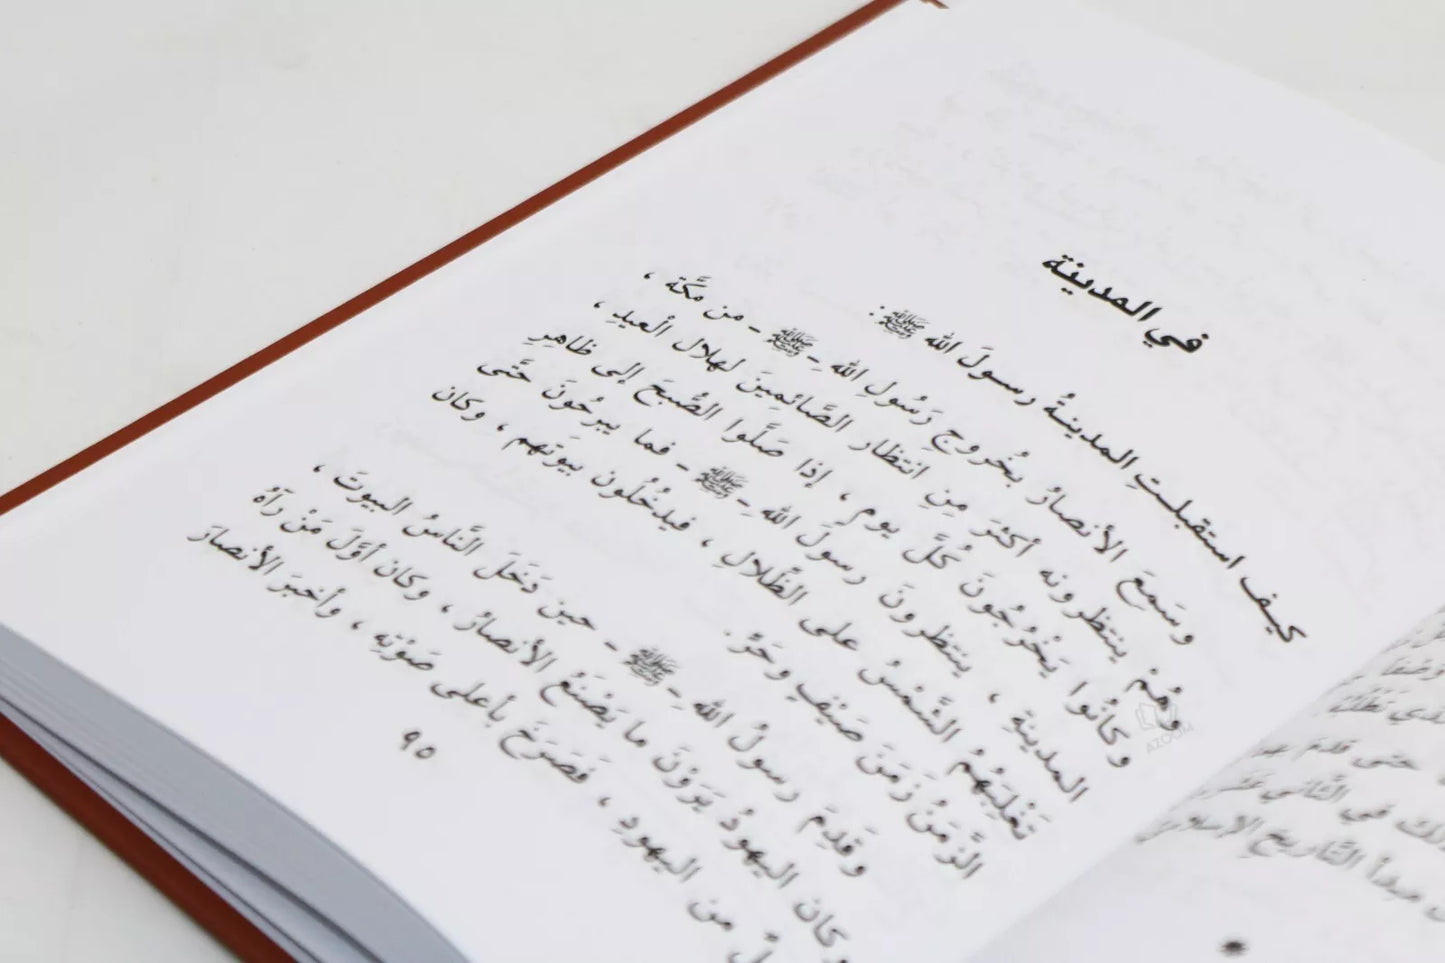 في المدينة
كيف استقبلتِ المدينةُ رسولَ الله ﷺ:
وسَمِعَ الأنصارُ بخُروجِ رَسُولِ اللهِ - ﷺ - من مكَّة ،
وهُمْ ينتظرونه أكثرَ مِنِ انتظارِ الصَّائِمينَ لهلال الْعيدِ ،
وكانُوا يَخْرُجُونَ كُلَّ يومٍ ، إذا صَلَّوا الصُّبحَ إلى ظاهِرِ
المدينةِ ، ينتظرونَ رسولَ اللهِ - ﷺ - فما يبرحُونَ حتَّى
تَغْلِبَهُمُ الشَّمْسُ على الظِّلالِ ، فيدخُلُون بيوتَهم ، وكان
الزَّمَنُ زَمَنَ صَيْفٍ وحَرٍّ.
وقَدِمَ رسولُ اللهِ - ﷺ - حين دَخَلَ النَّاسُ البيوتَ ،
وكان اليهودُ يَرَوْنَ ما يَصْنَعُ الأنصارُ ، وكان أوَّلَ مَنْ رآهُ
من اليهودِ ، فَصَرَخَ بأعلى صَوْتِه ، وأخبَرَ الأنصارَ
٩٥
AZOOM
حتى قدمَ
في الثَّاني عَشَرَ
مبدأَ التَّاريخِ الإسلامي